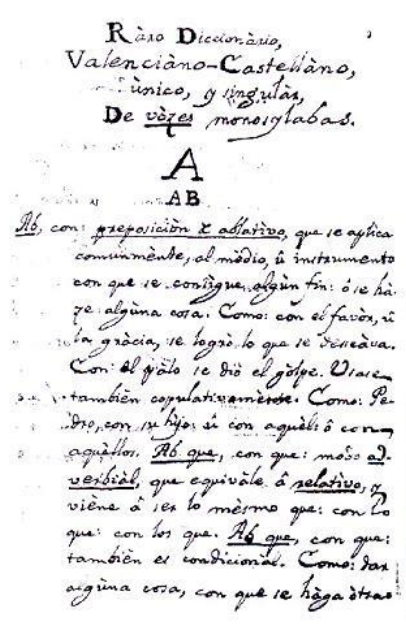 Ràro Diccionàrio,
Valenciàno-Castellàno,
ùnico, y singulàr,
De vòzes monosylabas.
A
AB
Ab, con: preposiciòn de ablativo, que se aplica
comunmènte, al mèdio, û instrumento
con que se consigue algùn fin: ô se hà-
ze algùna cosa. Como: con el favòr, û
la gràcia, se logrò lo que se deseàva.
Con el pàlo se diò el gòlpe. Usase
tambièn copulativamènte. Como: Pe-
dro, con su hijo: û con aquèl: ô con
aquèllos. Ab que, con que: modo ad-
verbiàl, que equivàle â relativo, y
viène â ser lo mèsmo que: con lo
que: con los que. Ab que, con que:
tambièn es condicionàl. Como: dar
algùna cosa, con que se hàga òtra